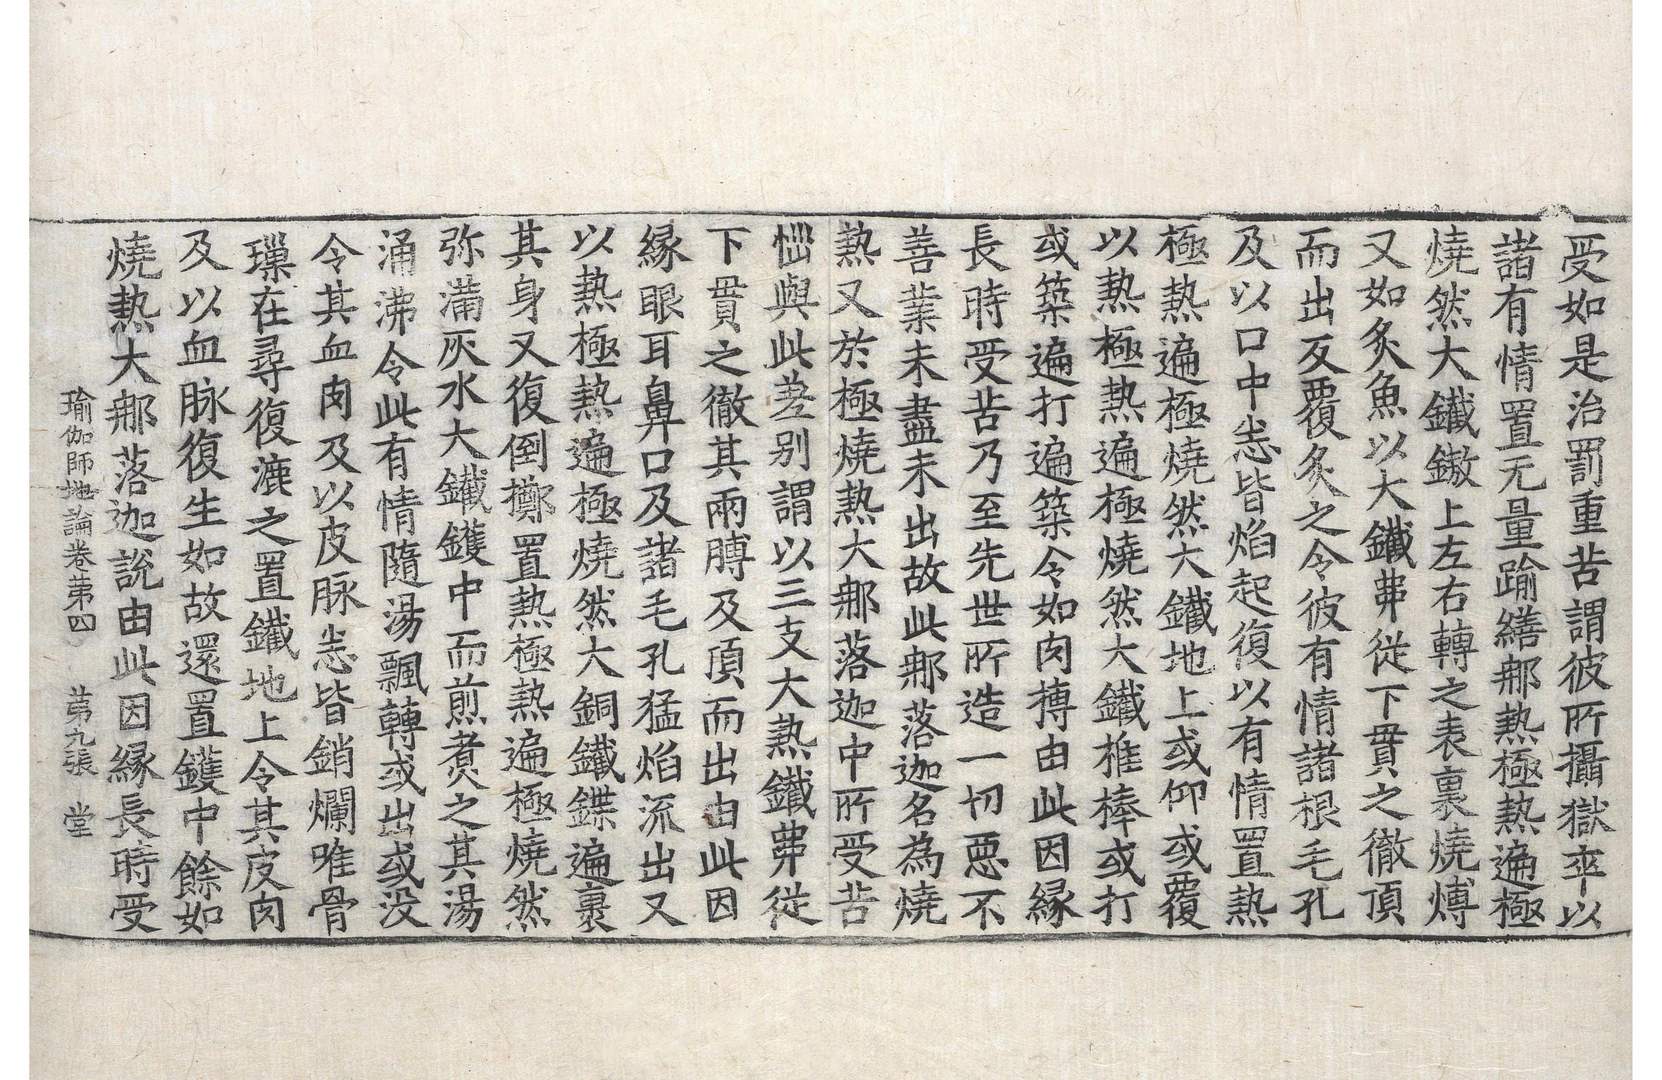 受如是治罰重苦謂彼所攝獄卒以
諸有情置无量踰繕那熱極熱遍極
燒然大鐵鏊上左右轉之表裏燒煿
又如炙魚以大鐵丳從下貫之徹頂
而出反覆炙之令彼有情諸根毛孔
及以口中悉皆焰起復以有情置熱
極熱遍極燒然大鐵地上或仰或覆
以熱極熱遍極燒然大鐵椎棒或打
或築遍打遍築令如肉摶由此因緣
長時受苦乃至先世所造一切惡不
善業未盡未出故此那落迦名為燒
熱又於極燒熱大那落迦中所受苦
惱與此差別謂以三支大熱鐵丳從
下貫之徹其兩膊及頂而出由此因
緣眼耳鼻口及諸毛孔猛焰流出又
以熱極熱遍極燒然大銅鐵鍱遍裹
其身又復倒擲置熱極熱遍極燒然
弥滿灰水大鐵鑊中而煎煮之其湯
涌沸令此有情隨湯飄轉或出或没
令其血肉及以皮脉悉皆銷爛唯骨
璅在尋復漉之置鐵地上令其皮肉
及以血脉復生如故還置鑊中餘如
燒熱大那落迦說由此因緣長時受
瑜伽師地論卷苐四 苐九張 堂